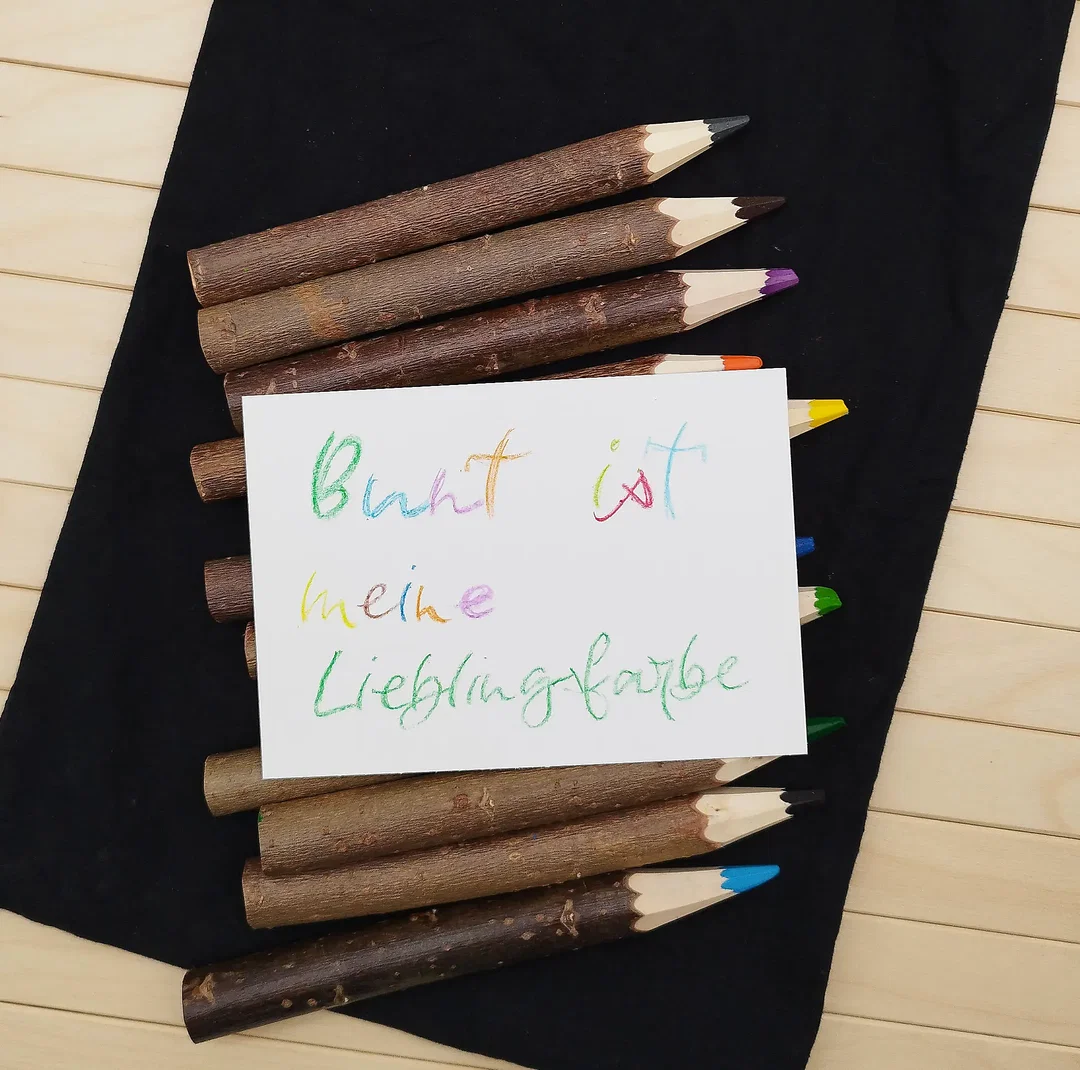 Bunt ist
meine
Lieblingsfarbe